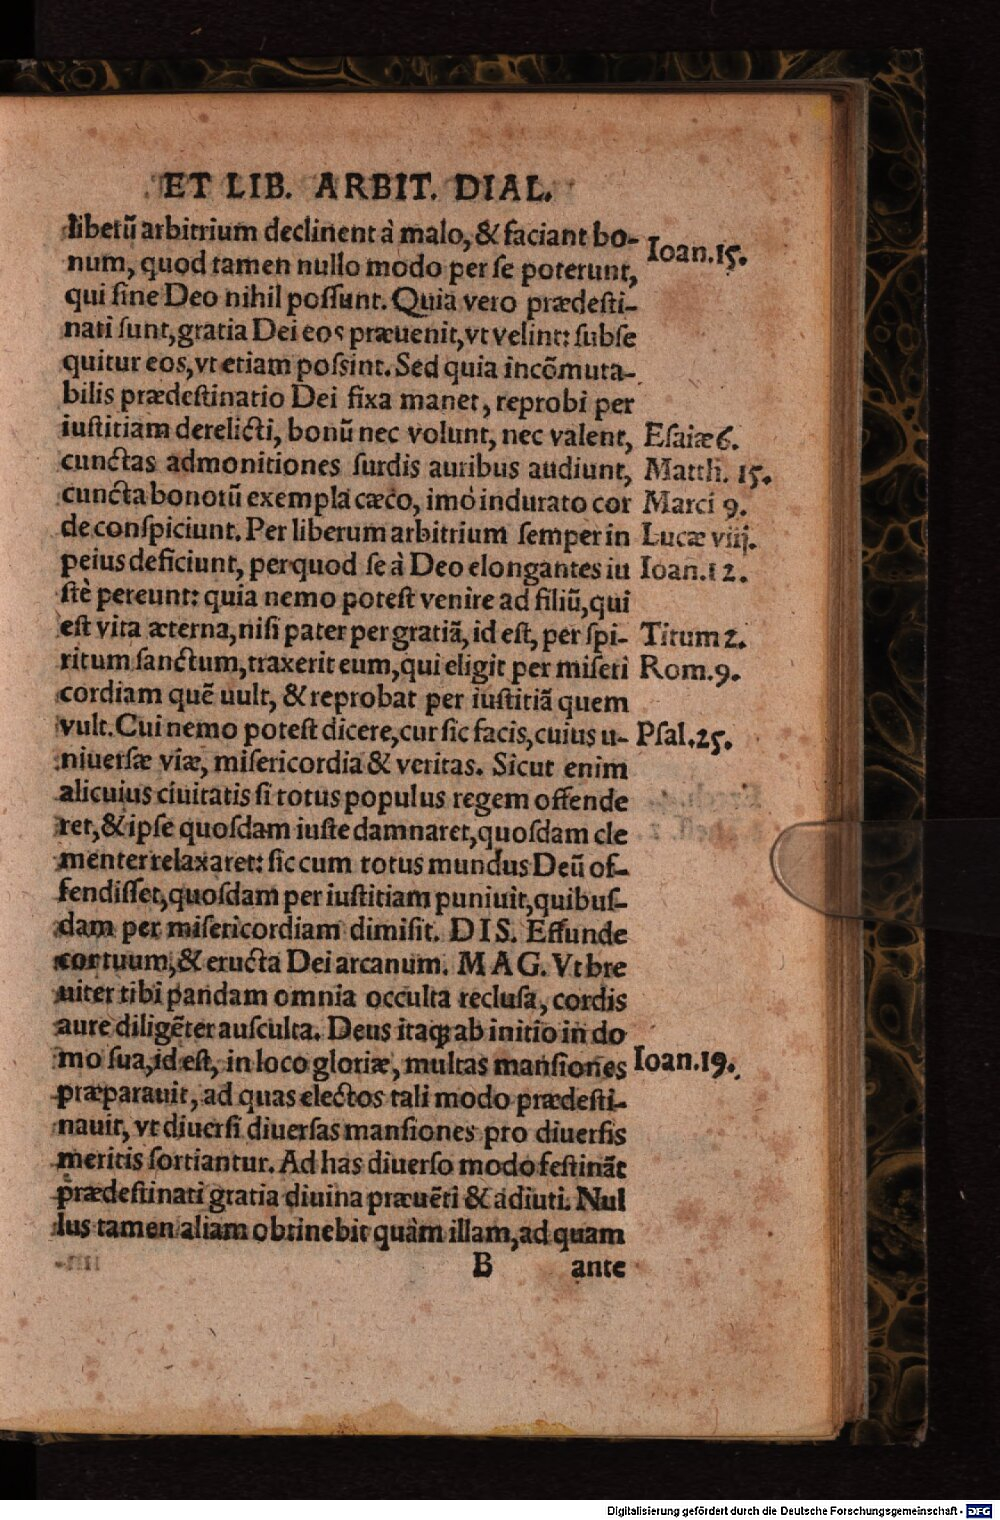 ET LIB. ARBIT. DIAL.
liberũ arbitrium declinent à malo, & faciant bo-
Ioan.15.
num, quod tamen nullo modo per se poterunt,
qui sine Deo nihil possunt. Quia vero prædesti-
nati sunt, gratia Dei eos præuenit, vt velint: subse
quitur eos, vt etiam possint. Sed quia incõmuta-
bilis prædestinatio Dei fixa manet, reprobi per
iustitiam derelicti, bonũ nec volunt, nec valent,
Esaiæ 6.
cunctas admonitiones surdis auribus audiunt,
Matth. 15.
cuncta bonorũ exempla cæco, imò indurato cor
Marci 9.
de conspiciunt. Per liberum arbitrium semper in
Lucæ viij.
peius deficiunt, per quod se à Deo elongantes iu
Ioan.12.
stè pereunt: quia nemo potest venire ad filiũ, qui
est vita æterna, nisi pater per gratiã, id est, per spi-
Titum 2.
ritum sanctum, traxerit eum, qui eligit per miseri
Rom.9.
cordiam quẽ uult, & reprobat per iustitiã quem
vult. Cui nemo potest dicere, cur sic facis, cuius u-
Psal.25.
niuersæ viæ, misericordia & veritas. Sicut enim
alicuius ciuitatis si totus populus regem offende
ret, & ipse quosdam iuste damnaret, quosdam cle
menter relaxaret: sic cum totus mundus Deũ of-
fendisset, quosdam per iustitiam puniuit, quibus-
dam per misericordiam dimisit. DIS. Effunde
cor tuum, & eructa Dei arcanum. MAG. Vt bre
uiter tibi pandam omnia occulta reclusa, cordis
aure diligẽter ausculta. Deus itaqꝫ ab initio in do
mo sua, id est, in loco gloriæ, multas mansiones
Ioan.19.
præparauit, ad quas electos tali modo prædesti-
nauit, vt diuersi diuersas mansiones pro diuersis
meritis sortiantur. Ad has diuerso modo festinãt
prædestinati gratia diuina præuẽti & adiuti. Nul
lus tamen aliam obtinebit quàm illam, ad quam
B ante
Digitalisierung gefördert durch die Deutsche Forschungsgemeinschaft - DFG